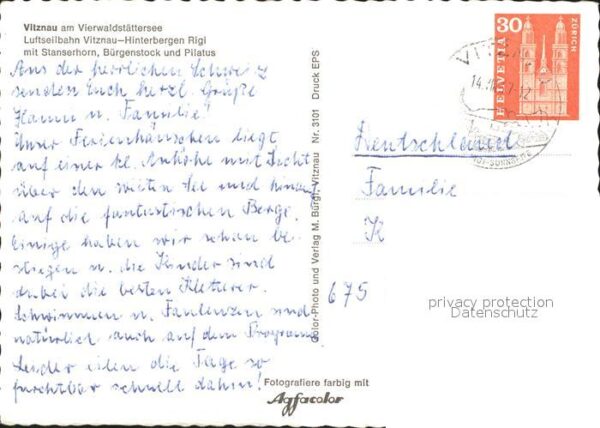 Vitznau am Vierwaldstättersee
Luftseilbahn Vitznau—Hinterbergen Rigi
mit Stanserhorn, Bürgenstock und Pilatus
Aus der herrlichen Schweiz
senden Euch herzl. Grüße
Hanni u. Familie!
Unser Ferienhäuschen liegt
auf einer kl. Anhöhe mit Sicht
über den weiten See und hinauf
auf die fantastischen Berge.
Einige haben wir schon be-
stiegen u. die Kinder sind
dabei die besten Kletterer.
Schwimmen u. Faulenzen sind
natürlich auch auf dem Programm.
Leider eilen die Tage so
furchtbar schnell dahin!
Color-Photo und Verlag M. Bürgi, Vitznau Nr. 3101 Druck EPS
Fotografiere farbig mit
Agfacolor
30
HELVETIA
ZÜRICH
VITZ
Deutschland
Familie
K
675
privacy protection
Datenschutz